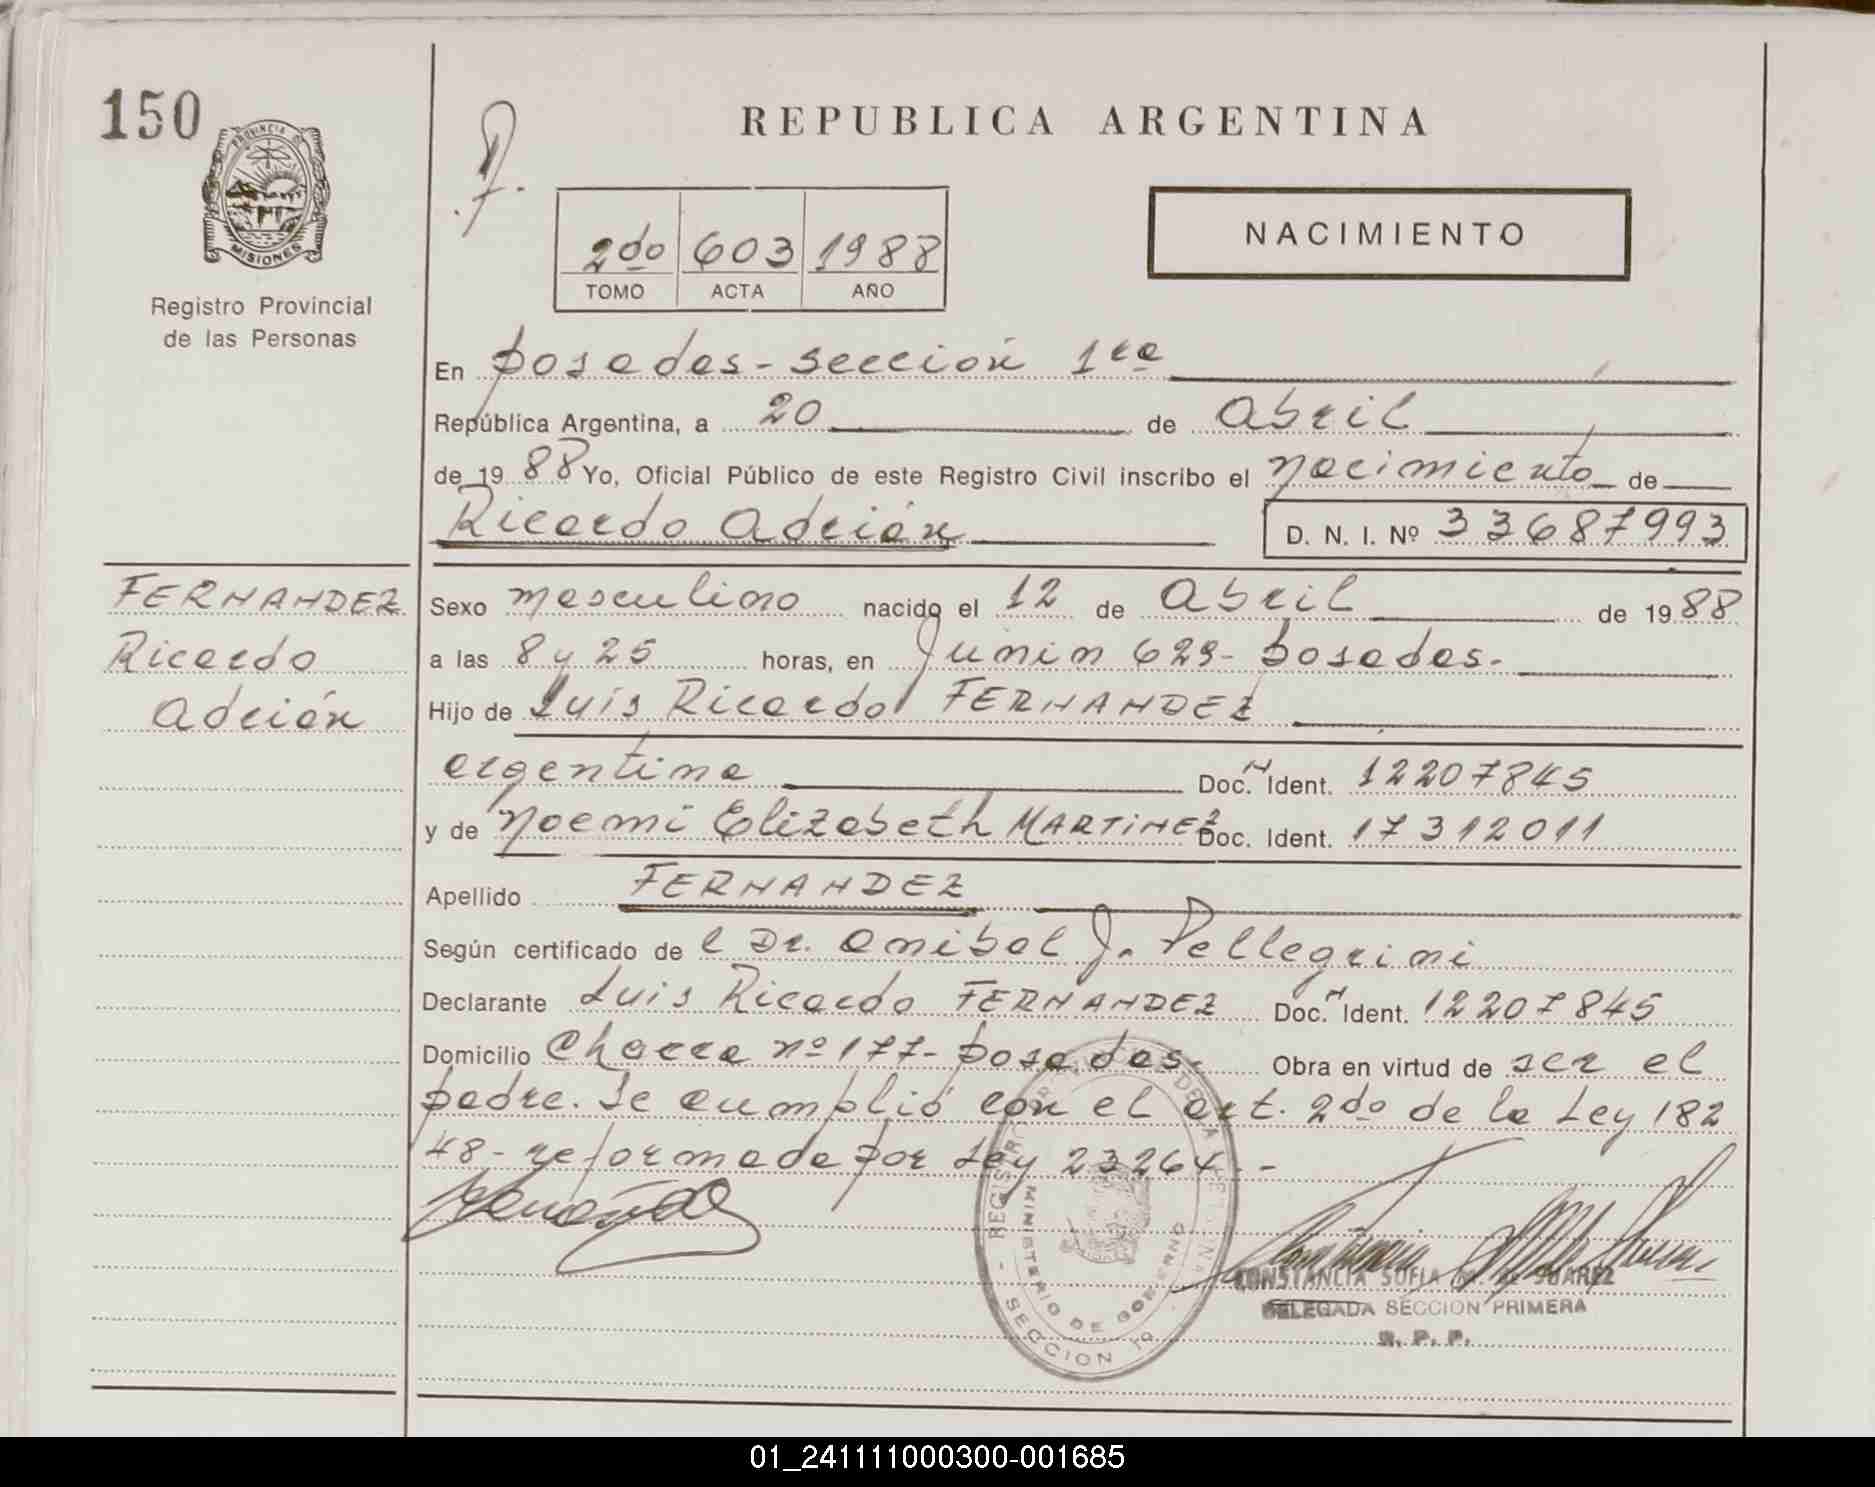 150
PROVINCIA D
MISIONES
Registro Provincial
de las Personas
REPUBLICA ARGENTINA
NACIMIENTO
2do 603 1988
TOMO ACTA AÑO
En Posadas - Sección 1ra
República Argentina, a 20 de Abril
de 1988 Yo, Oficial Público de este Registro Civil inscribo el nacimiento de
Ricardo Adrián
D. N. I. Nº 33687993
FERNANDEZ
Ricardo
Adrián
Sexo masculino nacido el 12 de Abril de 1988
a las 8 y 25 horas, en Junin 629 - Posadas.
Hijo de Luis Ricardo FERNANDEZ
argentina Doc. N Ident. 12207845
y de Noemi Elizabeth MARTINEZ Doc. Ident. 17312011
Apellido FERNANDEZ
Según certificado de l Dr. Anibal J. Pellegrini
Declarante Luis Ricardo FERNANDEZ Doc. N Ident. 12207845
Domicilio Chacra nº 177 - Posadas. Obra en virtud de ser el
padre. Se cumplió con el art. 2do de la Ley 182
48 - reformada por Ley 23264. -
MINISTERIO DE GOBIERNO
SECCION
CONSTANCIA SOFIA M. de SUAREZ
DELEGADA SECCION PRIMERA
R. P. P.
01_241111000300-001685